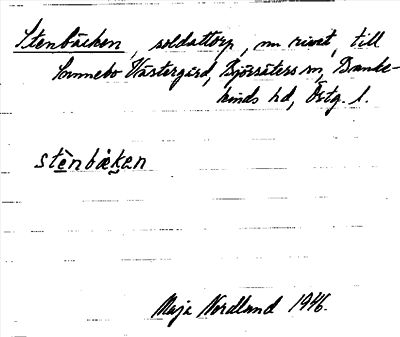 Stenbäcken, soldattorp, nu rivet, till
Sonnebo Västergård, Björsäters sn, Banke-
kinds hd, Östg. l.
stènbækan
Maja Nordlund 1946.